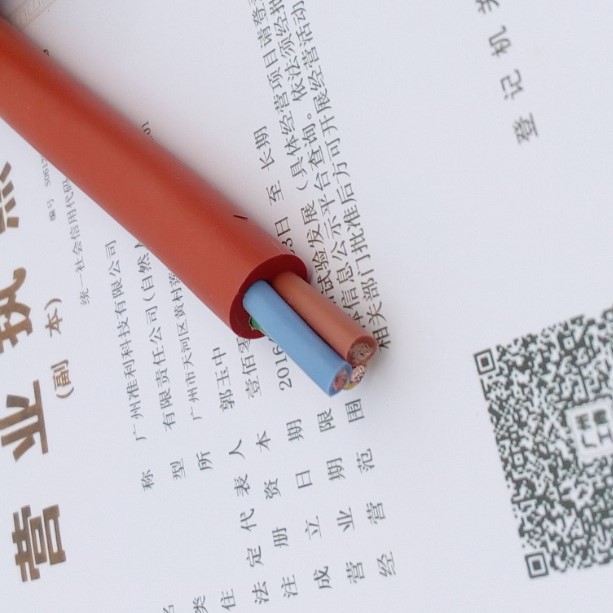 营业执照
(副 本)
编号
统一社会信用代码
名称 广州准利科技有限公司
类型 有限责任公司(自然人
住所 广州市天河区黄村
法定代表人 郭玉中
注册资本 壹佰
成立日期 2016
营业期限 日 至 长期
经营范围 试验发展(具体经营项目请登
信息公示平台查询。依法须经批
相关部门批准后方可开展经营活动
登记机关